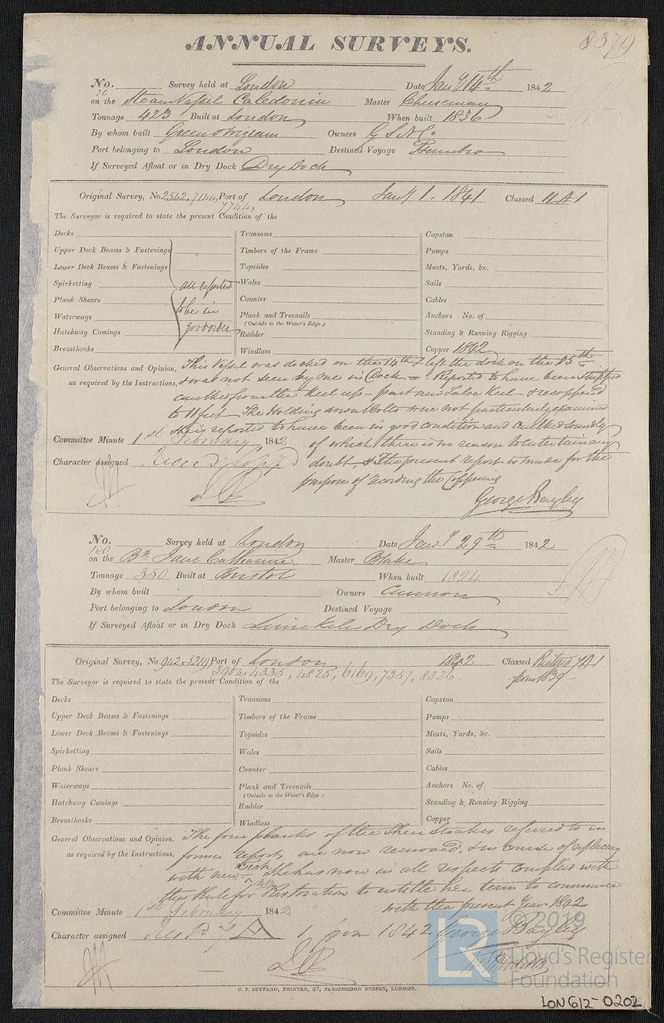 8379
ANNUAL SURVEYS.
No. 26 Survey held at London Date Jany 14th 1842
on the Steam Vessel Caledonia Master Cheeseman
Tonnage 423 Built at London When built 1836
By whom built Green & Wigram Owners G S N Co
Port belonging to London Destined Voyage
If Surveyed Afloat or in Dry Dock Dry Dock
Original Survey, No 2562, 7144, Port of London Jany 1. 1841 Classed 11 A1
7744,
The Surveyor is required to state the present Condition of the
Decks Transoms Capstan
Upper Deck Beams & Fastenings Timbers of the Frame Pumps
Lower Deck Beams & Fastenings Topsides Masts, Yards, &c.
Spirketting all reported Wales Sails
Plank Shears to be in Counter Cables
Waterways good order Plank and Treenails Anchors No. of
(Outside to the Water's Edge.)
Hatchway Comings Rudder Standing & Running Rigging
Breasthooks Windlass Copper 1842
General Observations and Opinion, This Vessel was docked on the 14th & left the dock on the 25th
as required by the Instructions, & was not seen by me in Dock = Reported to have been stripped
caulked from the Keel up - part new False Keel - & recoppered
to 11 feet The Holding down Bolts were not particularly examined
She is reported to have been in good condition and caulked soundly
Committee Minute 1st February 1842 of which there is no reason to entertain any
Character assigned doubt & the present report is made for the
purpose of recording the Coppering
George Bayley
No. 160 Survey held at London Date Jany 29th 1842
on the Bk Jane Catharine Master Blake
Tonnage 350 Built at Bristol When built 1824
By whom built Owners Cannon
Port belonging to London Destined Voyage
If Surveyed Afloat or in Dry Dock Limekiln Dry Dock
Original Survey, No 942, 3219 Port of London 1842 Classed Rest'd A1
3904, 4335, 4825, 6169, 7357, 8326. from 1839
The Surveyor is required to state the present Condition of the
Decks Transoms Capstan
Upper Deck Beams & Fastenings Timbers of the Frame Pumps
Lower Deck Beams & Fastenings Topsides Masts, Yards, &c.
Spirketting Wales Sails
Plank Shears Counter Cables
Waterways Plank and Treenails Anchors No. of
(Outside to the Water's Edge.)
Hatchway Comings Rudder Standing & Running Rigging
Breasthooks Windlass Copper
General Observations and Opinion, The four planks of the Sheer Strakes referred to in
as required by the Instructions, former reports are now removed, & in course of replacing
with new Teak She has now in all respects complied with
the Rule for Restoration to entitle her term to commence
with the present Year 1842
Committee Minute 1st February 1842
Character assigned 1 from 1842 George Bayley
LR © 2019
Lloyd's Register
Foundation
C. F. SEYFANG, PRINTER, 57, FARRINGDON STREET, LONDON.
LON612-0202